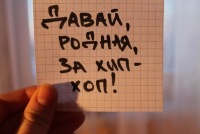 ДАВАЙ,
РОДНАЯ,
ЗА ХИП-
ХОП!